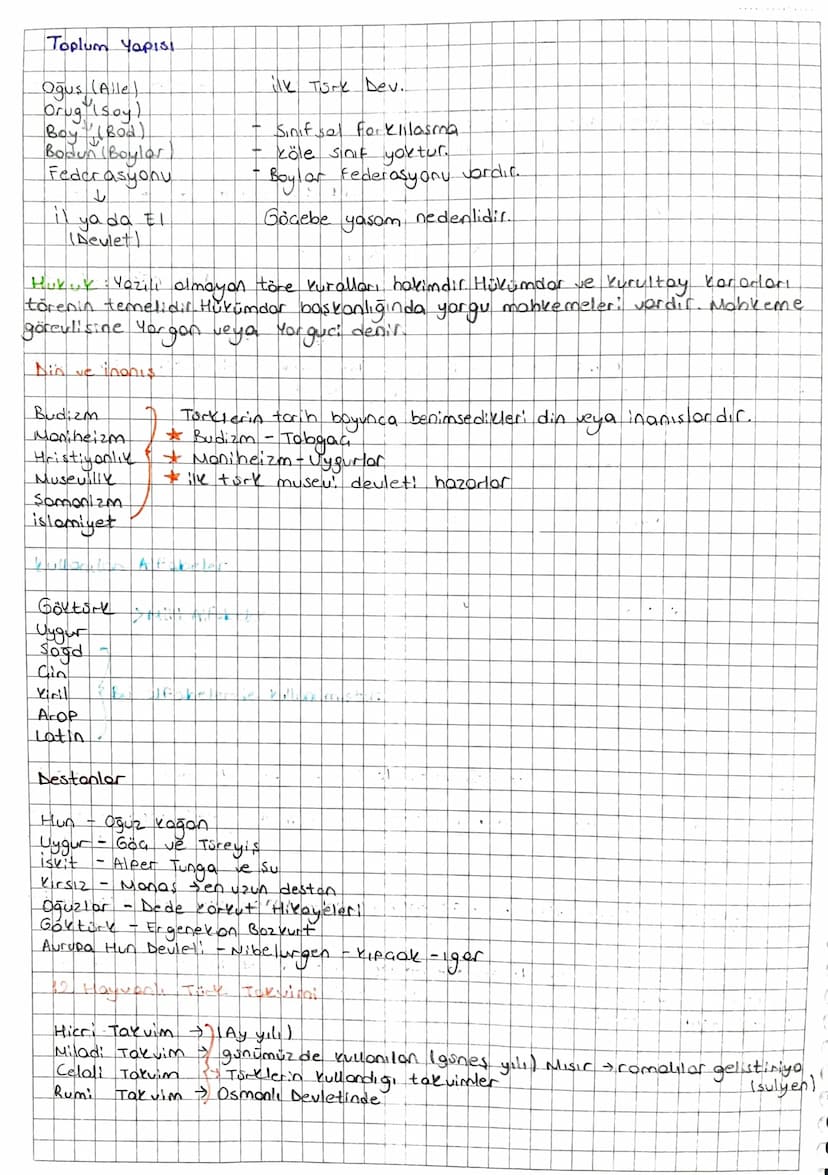 Toplum Yapısı
Oğuş (Aile)
Orug (Soy)
Boy (Bod)
Bodun (Boylar)
Federasyonu
↓
İl yada El
(Devlet)
İlk Türk Dev.
- Sınıfsal farklılaşma
- köle sınıf yoktur.
- Boylar federasyonu vardır.
Göçebe yaşam nedenlidir.
Hukuk: Yazılı olmayan töre kuralları hakimdir. Hükümdar ve kurultay kararları
törenin temelidir. Hükümdar başkanlığında yargu mahkemeleri vardır. Mahkeme
görevlisine Yargan veya Yarguci denir.
Din ve inanış
Budizm
Maniheizm
Hristiyanlık
Musevilik
Şamanizm
islamiyet
Türklerin tarih boyunca benimsedikleri din veya inanışlardır.
★ Budizm - Tabgaç
★ Maniheizm - Uygurlar
★ ilk türk musevi devleti hazarlar
Kullanılan Alfabeler
Göktürk > Milli Alfabe
Uygur
Soğd
Çin
Kiril
Arap
Latin
Destanlar
Hun - Oğuz Kağan
Uygur - Göç ve Türeyiş
İskit - Alper Tunga ve Şu
Kırgız - Manas → en uzun destan
Oğuzlar - Dede Korkut Hikayeleri
Göktürk - Ergenekon Bozkurt
Avrupa Hun Devleti - Nibelurgen - Kıpçak - iger
12 Hayvanlı Türk Takvimi
Hicri Takvim → (Ay yılı)
Miladi Takvim → günümüzde kullanılan (güneş yılı) Mısır → romalılar geliştiriyo
(sulyen)
Celali Takvim → Türklerin kullandığı takvimler
Rumi Takvim → Osmanlı Devletinde